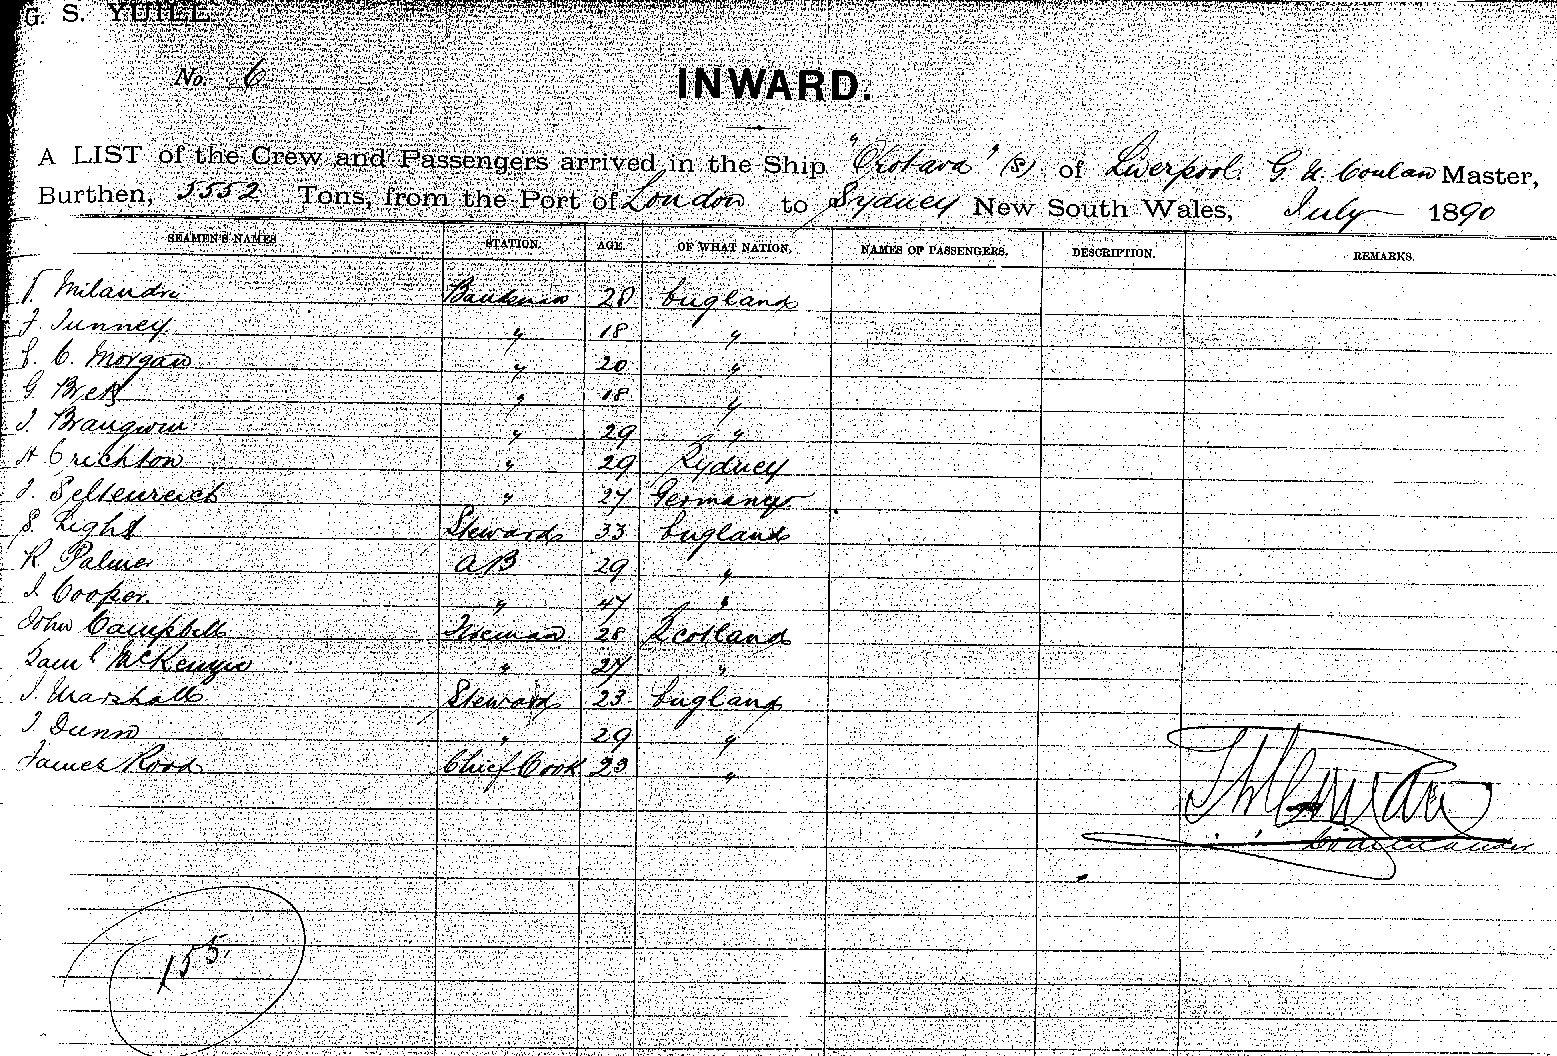 G. S. YUILL
No. 6
INWARD.
A LIST of the Crew and Passengers arrived in the Ship "Orotava" (s) of Liverpool G. N. Conlan Master,
Burthen, 5552 Tons, from the Port of London to Sydney New South Wales, July 1890
SEAMEN'S NAMES STATION. AGE. OF WHAT NATION. NAMES OF PASSENGERS. DESCRIPTION. REMARKS.
Milandri 28 England
J. Tunney " 18 "
E. C. Morgan " 20 "
G " 18 "
J. Brangwin " 29 "
A Crichton " 29 Sydney
J. Seltenreich " 27 Germany
S. Light Steward 33 England
R Palmer AB 29 "
J. Cooper. " 47 "
John Campbell Fireman 28 Scotland
Saml McKenzie " 27 "
J. Marshall Steward 23 England
J Dunn " 29 "
James Rood Chief Cook 23 "
Commander
155